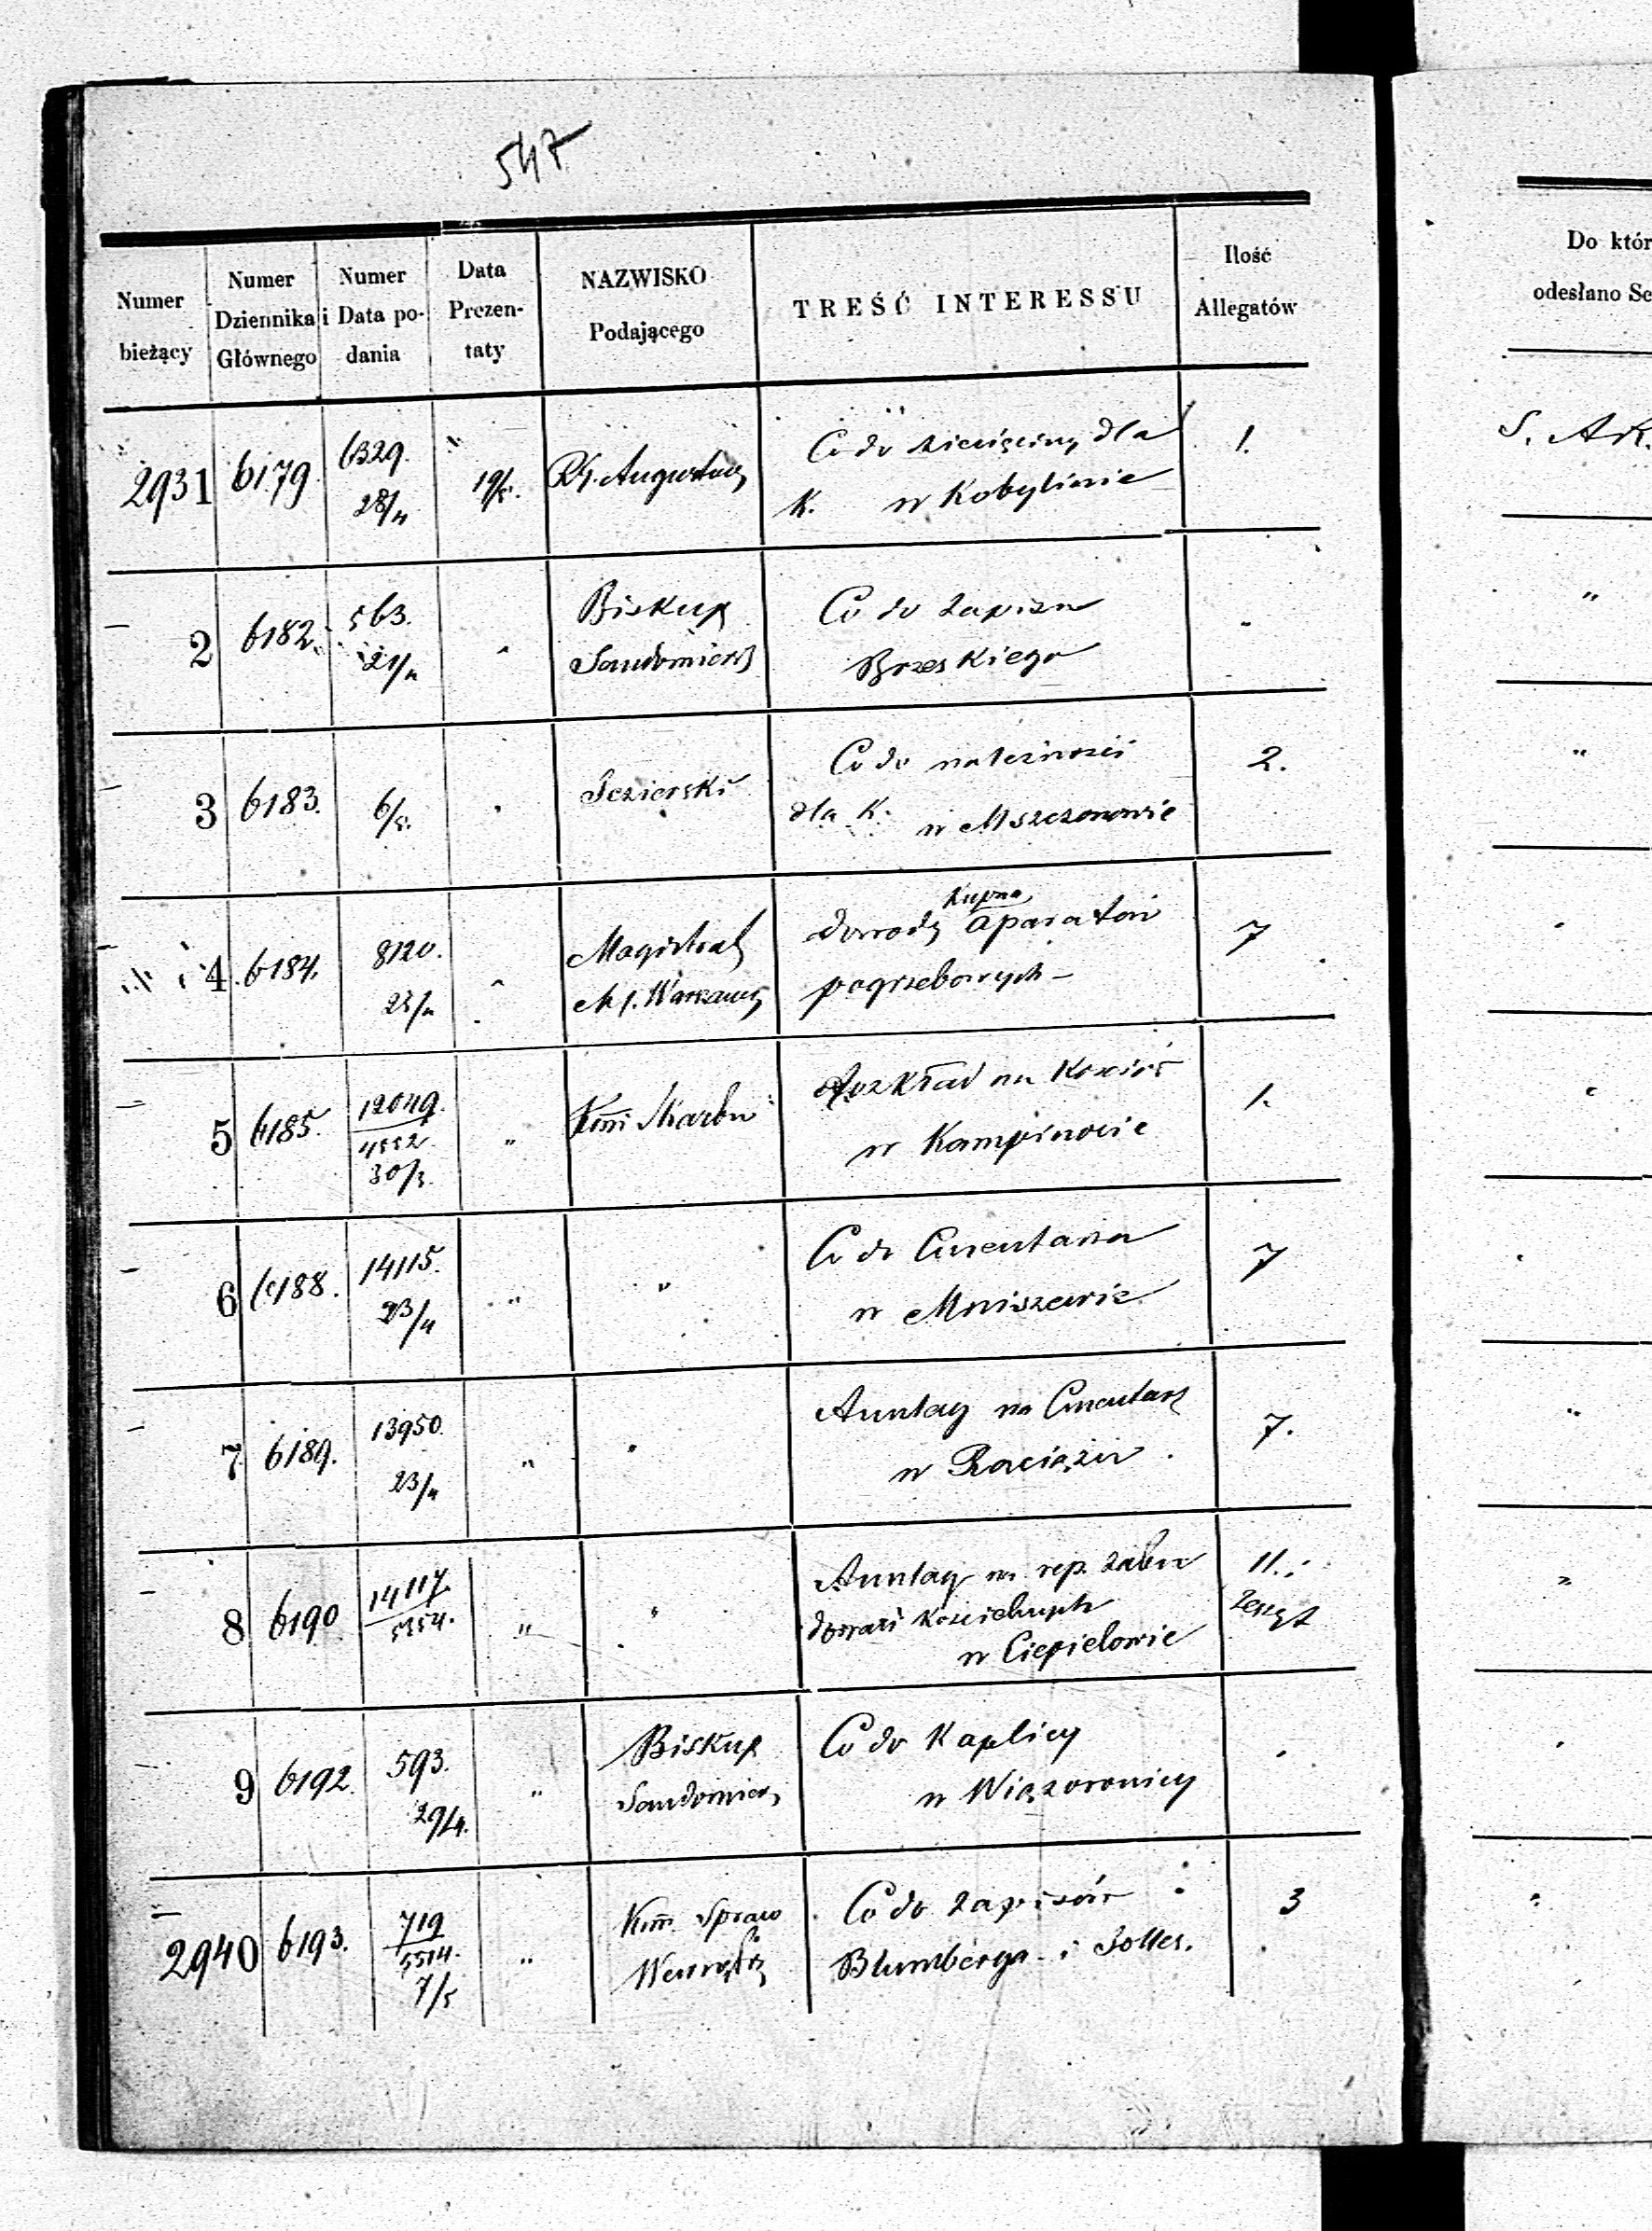 547
Numer bieżący
Numer Dziennika Głównego
Numer i Data podania
Data Prezentaty
NAZWISKO Podającego
TREŚĆ INTERESSU
Ilość Allegatów
Do któr
odesłano Se
2931 6179. 6329. 28/4 19/5. Augustow Co do dla 1. S. AK.
K. w Kobylinie
2 6182. 563. 21/4 Biskup Co do zapisu - "
Sandomiers Brzeskiego
3 6183. 6/5. Jezierski Co do należności 2. "
dla K. w Mszczonowie
4 6184. 8120. Magistrat dowody kupna aparatów 7
M. Warszawy pogrzebowych –
5 6185. 12049. 4552. 30/3. " Kom Skarbu Rozkład na Kościół 1.
w Kampinosie
6 6188. 14115. 23/4 " " Co do Cmentarza 7
w Mniszewie
7 6189. 13950. 23/4 " " Anszlag na Cmentarz 7. "
w Raciążu
8 6190 14117. 5354. " " Anszlag na rep. zabu 11. "
dowań kościelnych zeszyt
w Ciepielowie
9 6192. 593. 29/4. " Biskup Co do Kaplicy
Sandomier w Wiązownicy
2940 6193. 719 5514. 7/5 " Kom. Spraw Co do zapisów 3 "
Wewnętrz Blumberga i